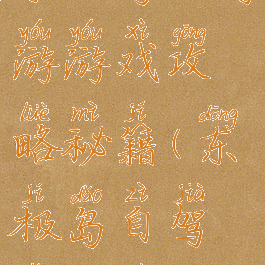 yóu yóu xì gōng
游游戏攻
lüè mì jí dōng
略秘籍(东
jí dǎo zì jià
极岛自驾